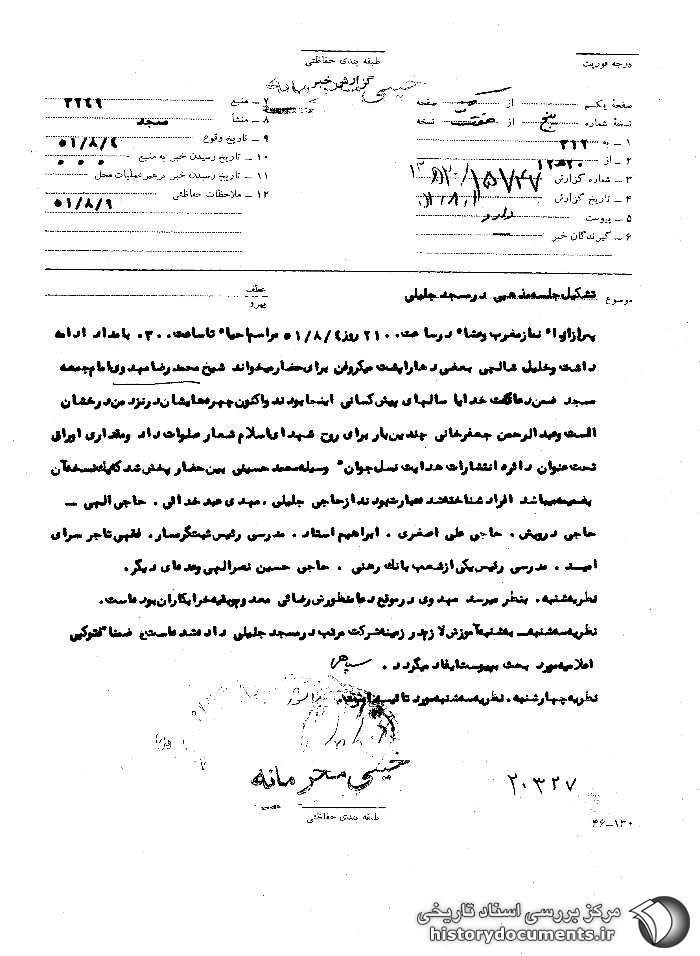 طبقه بندی حفاظتی
درجه فوریت
گزارش خبر
خیلی محرمانه
صفحهٔ یکم از یک صفحه
نسخهٔ شماره پنج از هفت نسخه
۱ ـ به ۳۱۲
۲ ـ از ۲۰ه۱۲
۳ ـ شماره گزارش ۱۵۷۴۷
۴ ـ تاریخ گزارش
۵ ـ پیوست دارد
۶ ـ گیرندگان خبر
۷ ـ منبع ۲۲۶۹
۸ ـ منشأ مسجد
۹ ـ تاریخ وقوع ۵۱/۸/۴
۱۰ ـ تاریخ رسیدن خبر به منبع
۱۱ ـ تاریخ رسیدن خبر برهبر عملیات محل
۱۲ ـ ملاحظات حفاظتی
۵۱/۸/۹
موضوع تشکیل جلسه مذهبی در مسجد جلیلی
عطف
پیرو
پس از اداء نماز مغرب و عشاء در ساعت ۲۱۰۰ روز ۵۱/۸/۴ مراسم احیاء تا ساعت ۰۳۰۰ بامداد ادامه
داشت و خلیل شالچی بعضی دعاها را پشت میکروفن برای حضار میخواند شیخ محمد رضا مهدوی امام جمعه
مسجد ضمن دعا گفت خدایا سالهای پیش کسانی اینجا بودند و اکنون چهره هایشان در نزد من درخشان
است و عبدالرحمن جعفرخانی چندین بار برای روح شهدای اسلام شعار صلوات داد و مقداری اوراق
تحت عنوان دائره انتشارات هدایت نسل جوان وسیله محمد حسینی بین حضار پخش شد که یک نسخه آن
بضمیمه میباشد افراد شناخته شده عبارت بودند از حاجی جلیلی ، مهدی عبد خدائی ، حاجی الهی ـ
حاجی درویش ، حاجی علی اصغری ، ابراهیم استاد ، مدرسی رئیس ثبت گرمسار، فقهی تاجر سرای
امید ، مدرسی رئیس یکی از شعب بانک رهنی ، حاجی حسین نصرالهی و عده ای دیگر .
نظریه شنبه . بنظر میرسد مهدوی در موقع دعا منظورش رضائی معدوم و بقیه خرابکاران بوده است .
نظریه سه شنبه ـ به شنبه آموزش لازم در زمینه شرکت مرتب در مسجد جلیلی داده شده است ضمناً فتوکپی
اعلامیه مورد بحث به پیوست ایفاد میگردد .
نظریه چهارشنبه . نظریه سه شنبه مورد تائید است
خیلی محرمانه
۲۰۳۲۷
طبقه بندی حفاظتی
۴۶-۱۳۰
مرکز بررسی اسناد تاریخی
historydocuments.ir